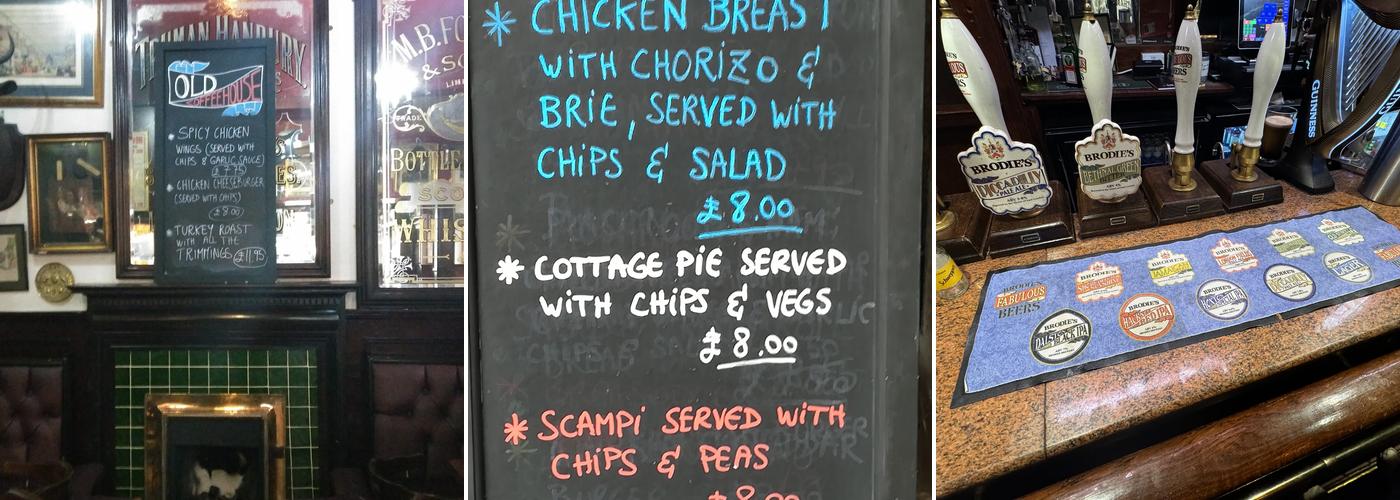 OLD
COFFEEHOUSE
* SPICY CHICKEN
WINGS (SERVED WITH
CHIPS & GARLIC SAUCE)
£7.75
* CHICKEN CHEESEBURGER
(SERVED WITH CHIPS)
£8.00
* TURKEY ROAST
WITH ALL THE
TRIMMINGS £11.95
HANBURY
M.B.FO
& SO
TRADE
BOTTLE
SCO
WHIS
* CHICKEN BREAST
WITH CHORIZO &
BRIE, SERVED WITH
CHIPS & SALAD
£8.00
* COTTAGE PIE SERVED
WITH CHIPS & VEGS
£8.00
* SCAMPI SERVED WITH
CHIPS & PEAS
£8.00
BRODIE'S
PICCADILLY
PALE ALE
BRODIE'S
BETHNAL GREEN
GUINNESS
BRODIE'S
FABULOUS
BEERS
JAMAICAN
LONDON
BRODIE'S
DALSTON BLACK IPA
BRODIE'S
HACKNEY RED IPA